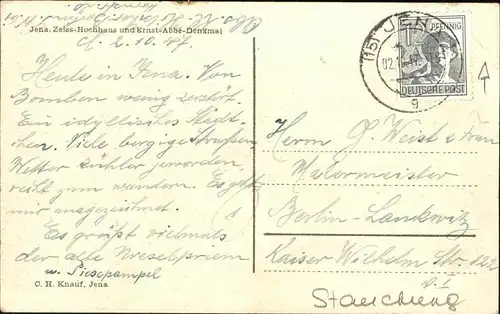 Jena: Zeiss-Hochhaus und Ernst-Abbe-Denkmal
d. 2.10.47
Heute in Jena. Von
Bomben wenig zerstört.
Ein idyllisches Städt-
chen. Viele bergige Straßen.
Wetter kühler geworden,
reicht zum wandern. Es geht
mir ausgezeichnet.
Es grüßt vielmals
der alte Priesepriem
u. Piesepampel
C. H. Knauf, Jena
(15) JENA
02.10.47
g
12 PFENNIG
DEUTSCHE POST
Herrn G. Weist u Frau
Malermeister
Berlin-Lankwitz
Kaiser Wilhelm Str. 122
v. I
Stauchung